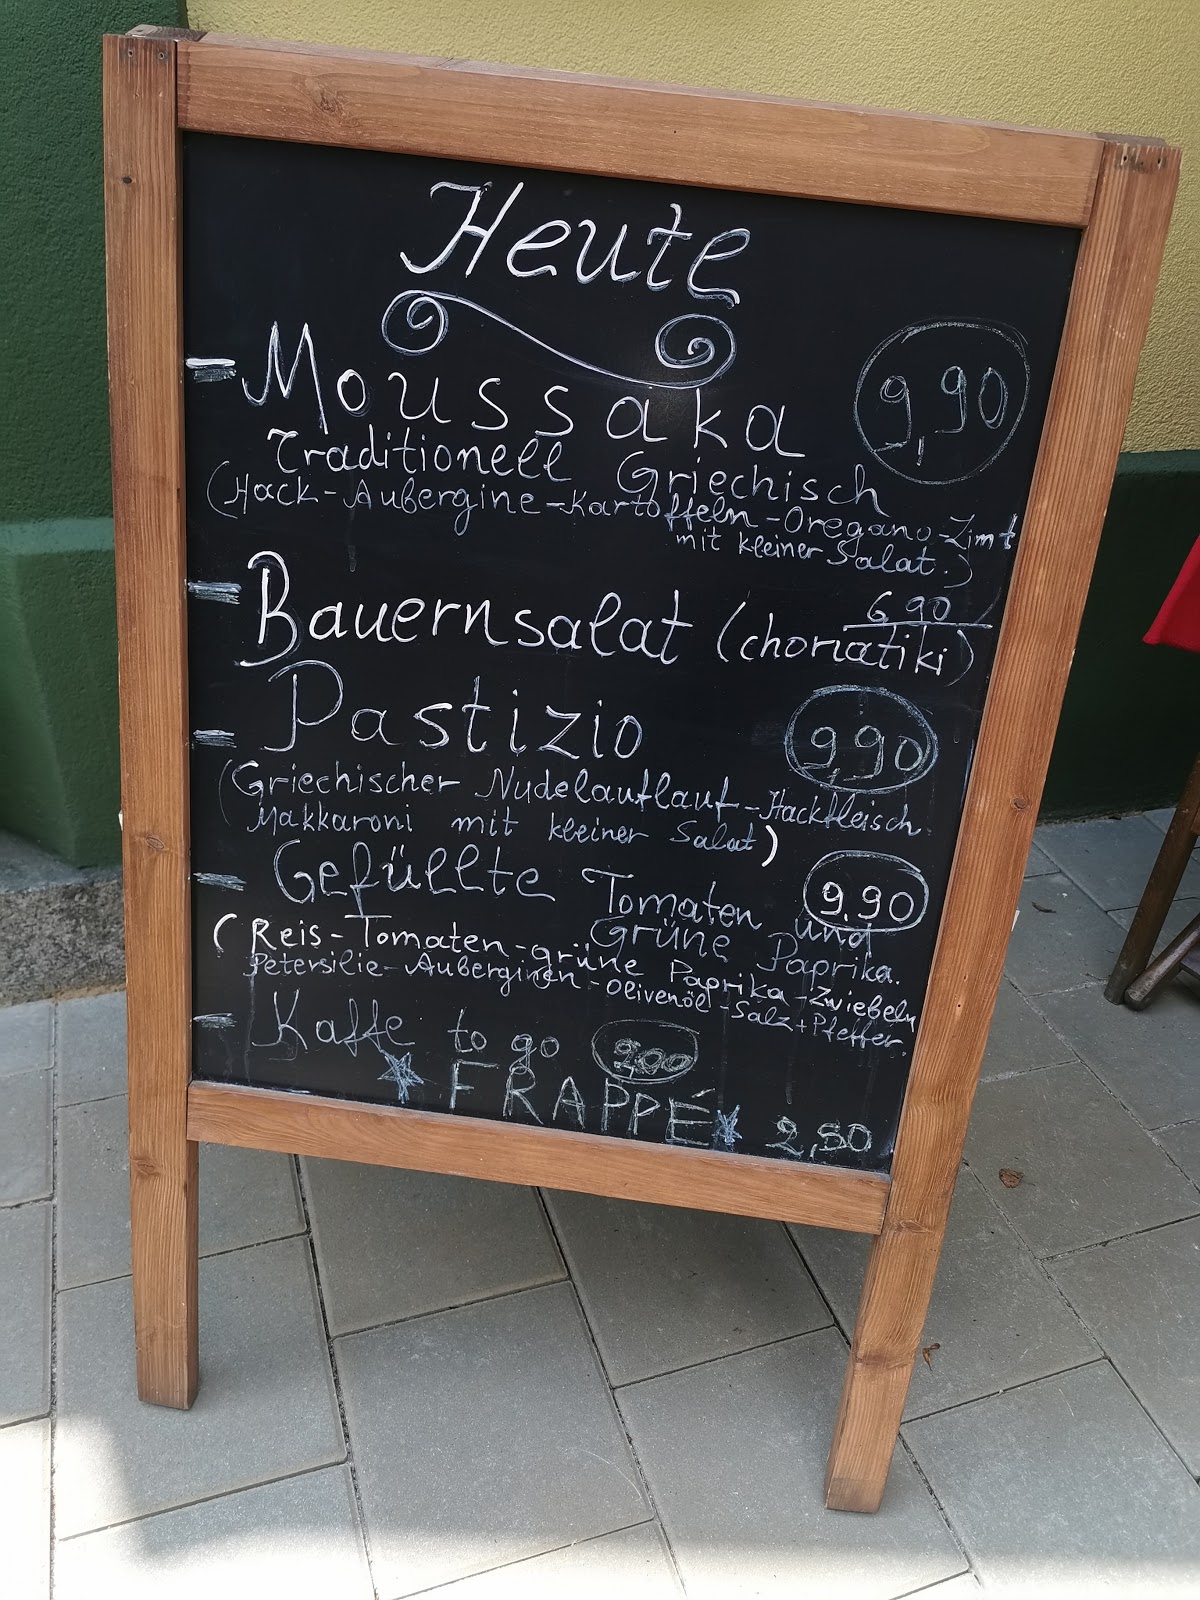 Heute
- Moussaka 9,90
Traditionell Griechisch
(Hack-Aubergine-Kartoffeln-Oregano-Zimt
mit kleiner Salat.)
6,90
- Bauernsalat (choriatiki)
- Pastizio 9,90
(Griechischer Nudelauflauf-Hackfleisch
Makkaroni mit kleiner Salat)
- Gefüllte Tomaten und 9,90
Grüne Paprika.
(Reis-Tomaten-grüne Paprika-Zwiebeln
Petersilie-Auberginen-Olivenöl-Salz+Pfeffer.
- Kaffe to go 2,00
FRAPPÉ 2,50